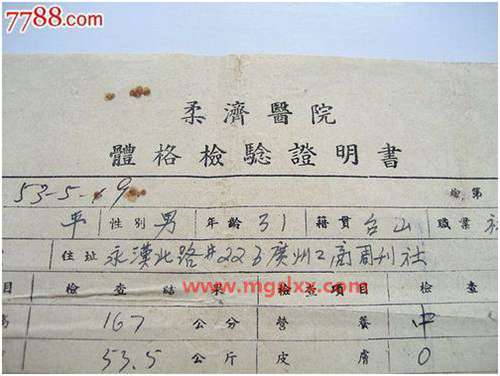 7788.com
柔濟醫院
體格檢驗證明書
53-5-19 第
平 性別 男 年齡 31 籍貫 台山 職業
住址 永漢北路#223 廣州工商周刊社
目 檢查結果 檢查項目 檢查
www.mgalxx.com
高 167 公分 營養 中
53.5 公斤 皮膚 0